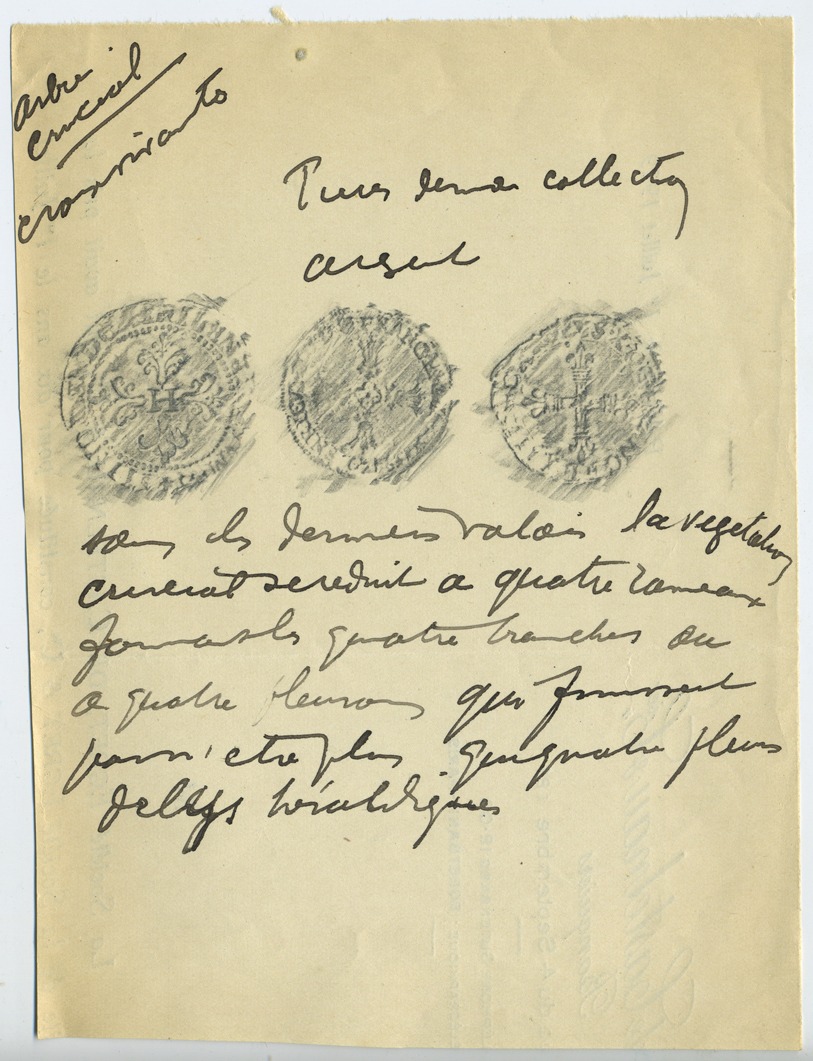 arbre
crucial
croix vivante
Pieces de ma collection
argent
H
sous les derniers valois la vegetation
crucial se reduit a quatre rameaux
formant les quatre branches ou
a quatre fleurons qui finissent
par n'etre plus que quatre fleurs
de lys héraldiques